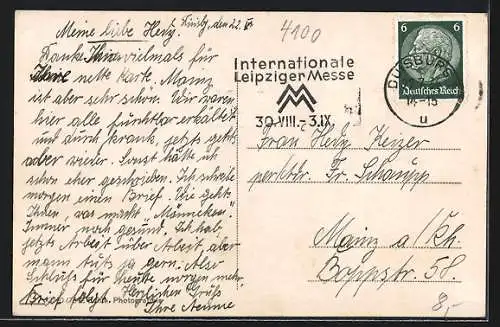 Duisbg, den 22. VI
Meine liebe Hedy.
Danke Ihnen vielmals für
Ihre nette Karte. Mainz
ist aber sehr schön. Wir waren
hier alle furchtbar erkältet
und durch krank, jetzt geht's
aber wieder. Sonst hätte ich
schon eher geschrieben. Ich schreibe
morgen einen Brief. Wie geht's
Ihnen, was macht "Männeken".
Immer noch gesund. Ich hab
jetzt Arbeit über Arbeit, aber
mann tut's ja gern. Also
Schluß für heute morgen mehr.
Brief folgt. Herzlichen Gruß
Ihre Aenne
Photograph
4100
Internationale
Leipziger Messe
MM
30.VIII.-3.IX.
DUISBURG
14-15
u
6 6
Deutsches Reich
Frau Hedy Keizer
per Adr. Fr. Schaupp
Mainz a/Rh.
Boppstr. 58.
8,-